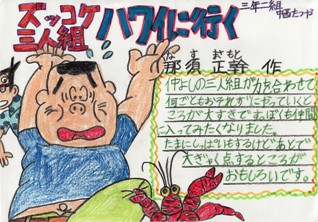 三年二組
ズッコケ
三人組
ハワイに行く
なす まさもと
那須 正幹 作
仲よしの三人組が力を合わせて
何ごともおそれずにやっていくと
ころが大すきです。ぼくも仲間
に入ってみたくなりました。
たまにしっぱいもするけどあとで
大ぎゃく点するところが
おもしろいです。